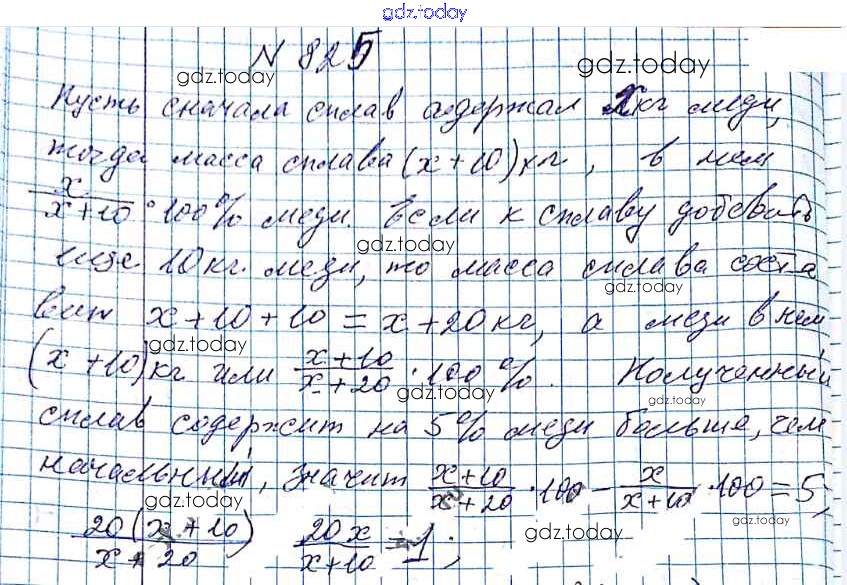 gdz.today
N 825
gdz.today gdz.today
Пусть сначала сплав содержал x кг меди,
тогда масса сплава (x+10) кг, в нем
x/(x+10) · 100% меди. Если к сплаву добавить
gdz.today
еще 10 кг. меди, то масса сплава соста
gdz.today
вит x+10+10 = x+20 кг, а меди в нем
gdz.today
(x+10) кг или (x+10)/(x+20) · 100%. Полученный
gdz.today gdz.today
сплав содержит на 5% меди больше, чем
начальный, значит (x+10)/(x+20) · 100 - x/(x+10) · 100 = 5,
gdz.today gdz.today gdz.today
20(x+10)/(x+20) 20x/(x+10) = 1;